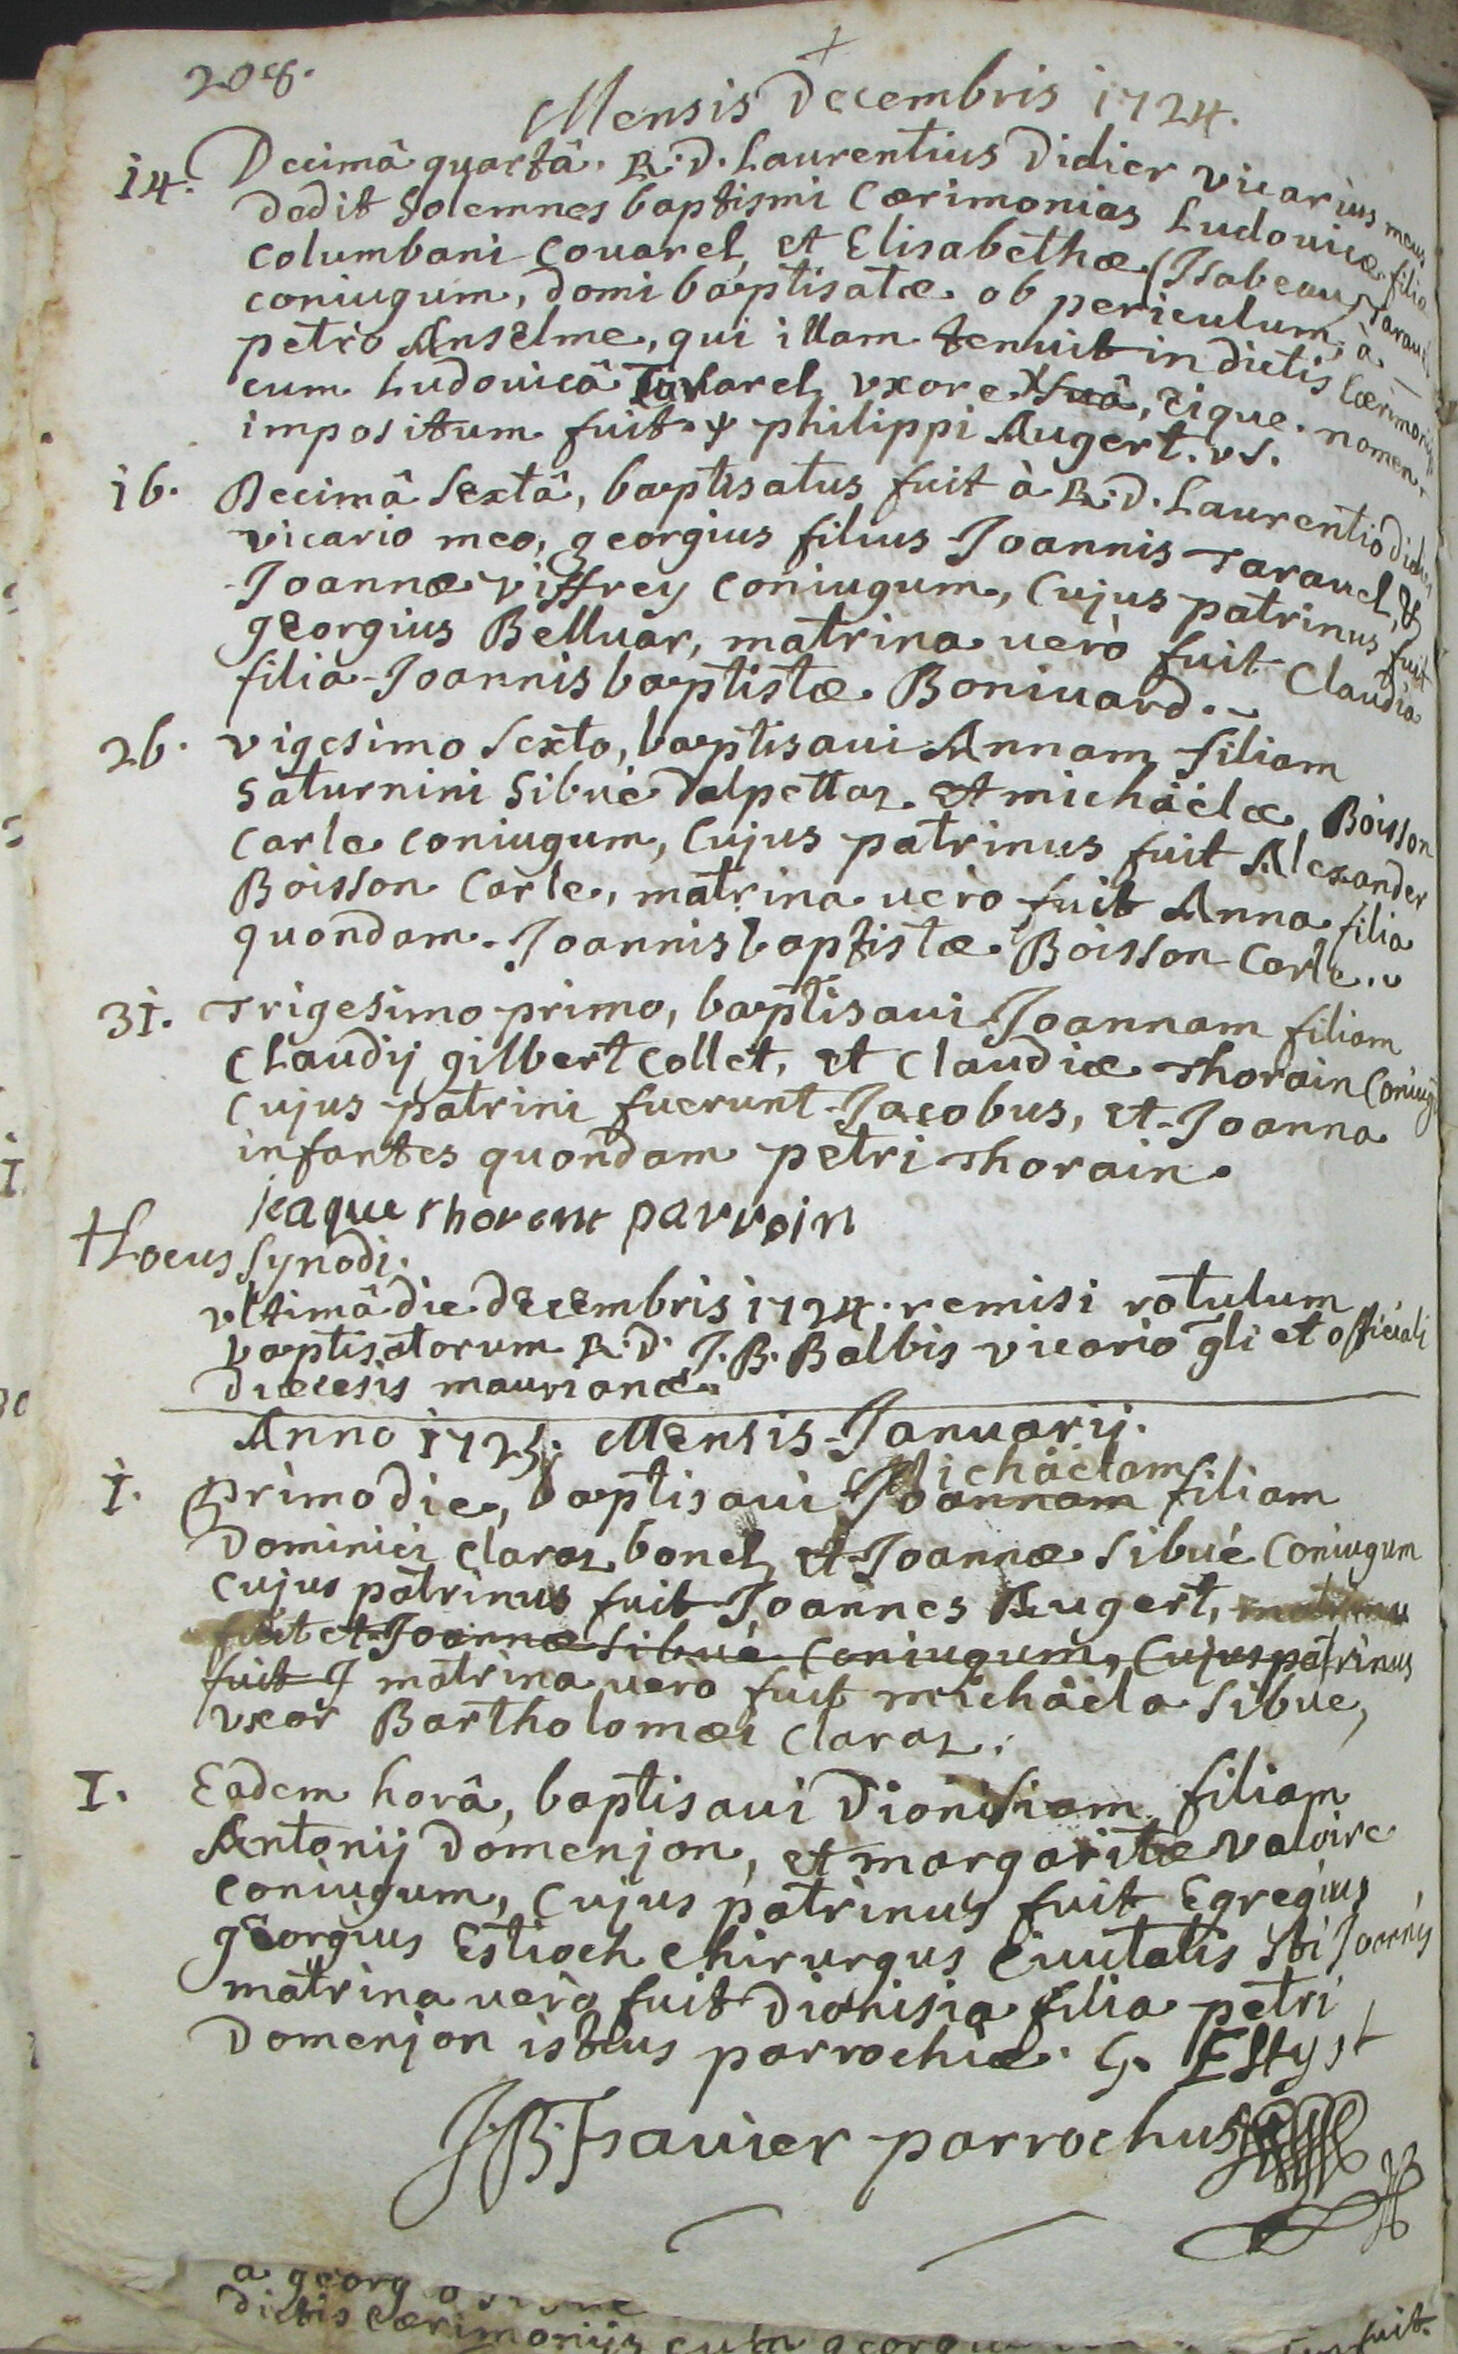 208.
Mensis Decembris 1724.
14. Decimâ quartâ. R. D. Laurentius Didier vicarius meus
dedit solemnes baptismi Cærimonias Ludovicæ filiæ
columbani Covarel, et Elisabethæ (Isabeau)
coniugum, domi baptisatæ ob periculum, à
petro Anselme, qui illam tenuit in dictis Cærimoniis
cum Ludovicâ uxore suâ, eique nomen
impositum fuit philippi Augert. vs.
16. Decimâ sextâ, baptisatus fuit à R. D. Laurentio Didier
vicario meo, georgius filius Joannis Taravel, &
Joannæ Viffrey coniugum, Cujus patrinus fuit
georgius Belluar, matrina verò fuit Claudia
filia Joannis baptistæ Bonivard.
26. vigesimo sexto, baptisavi Annam filiam
saturnini Sibué Dalpettaz et michäelæ Boisson
Carle coniugum, Cujus patrinus fuit Alexander
Boisson Carle, matrina verò fuit Anna filia
quondam Joannis baptistæ Boisson Carle.
31. Trigesimo primo, baptisavi Joannam filiam
Claudij gilbert Collet, et Claudiæ Thorain Coniugu
Cujus patrini fuerunt Jacobus, et Joanna
infantes quondam petri Thorain.
jeaque thorent parroin
+ Locus Synodi.
ultimâ die decembris 1724. remisi rotulum
baptisatorum R. D. J. B. Balbis vicario gli et officiali
diœcesis maurianæ.
Anno 1725. Mensis Januarij.
Michäelam
1. Primo die, baptisavi Joannam filiam
Dominici Claraz bonel, et Joannæ Sibué Coniugum
Cujus patrinus fuit Joannes Augert, matrina
fuit et Joannæ Sibué Coniugum, Cujus patrinus
fuit J matrina verò fuit michäela Sibue,
uxor Bartholomæi Claraz.
1. Eadem horâ, baptisavi Dionisiam filiam
Antonij Domenjon, et margaritæ Valoire
coniugum, Cujus patrinus fuit Egregius
georgius Estioch Chirurgus Civitatis Sti Joannis
matrina verò fuit Dionisia filia petri
Domenjon istius parrochiæ. G.
J. B. Travier parrochus
a georg
dictis Cærimoniis cum georgi fuit.